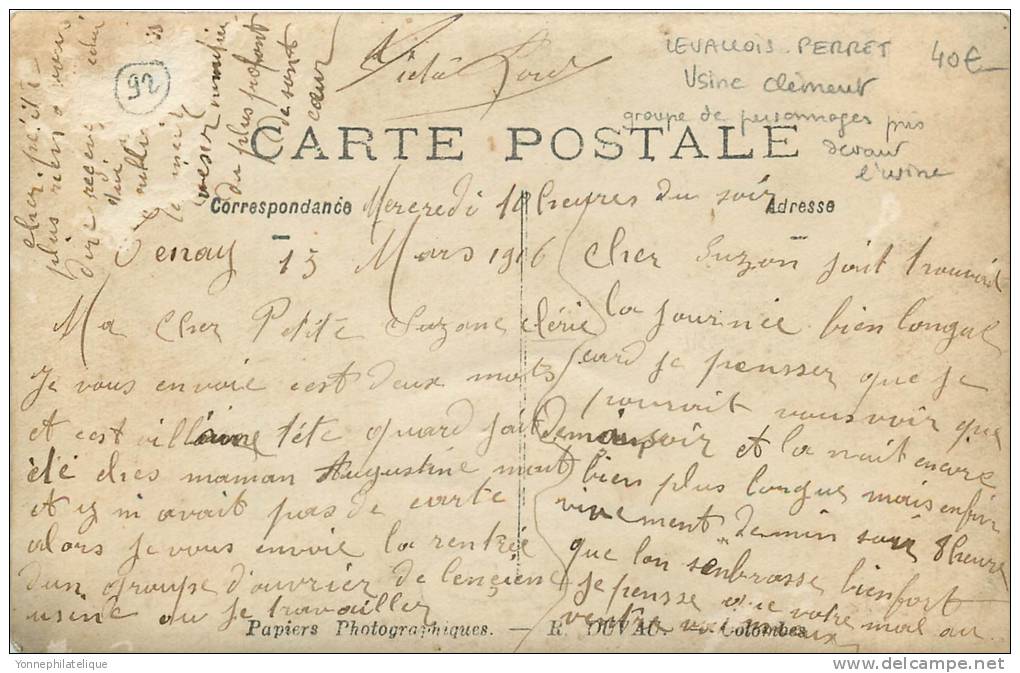 LEVALLOIS-PERRET 40€
Usine Clément
groupe de personnages pris
devant
l'usine
92
CARTE POSTALE
Correspondance
Adresse
Mercredi 10 heures du soir
Tenay 15 Mars 1916
Ma Cher Petite Suzane chérie
Je vous envoie cest deux mots
et cest villaine tête quard jait
été ches maman Augustine
et y n'avait pas de carte
alors je vous envoie la rentrée
dun groupe d'ouvrier de lencienne
usine ou je travailler
Cher Suzon jait trouvait
la journée bien longue
card je pensser que je
pourait vous voir que
demain soir et la nuit encore
bien plus longue mais enfin
vivement demin soir 8 heure
que lon senbrasse bien fort
je pensse que votre mal au
ventre va mieux
cher petite
plus rien a vous
dire
du plus profont
de sont
cœur
Papiers Photographiques. — R. DUVAU. — Colombes
Yonnephilatelique
© DELCAMPE.NET